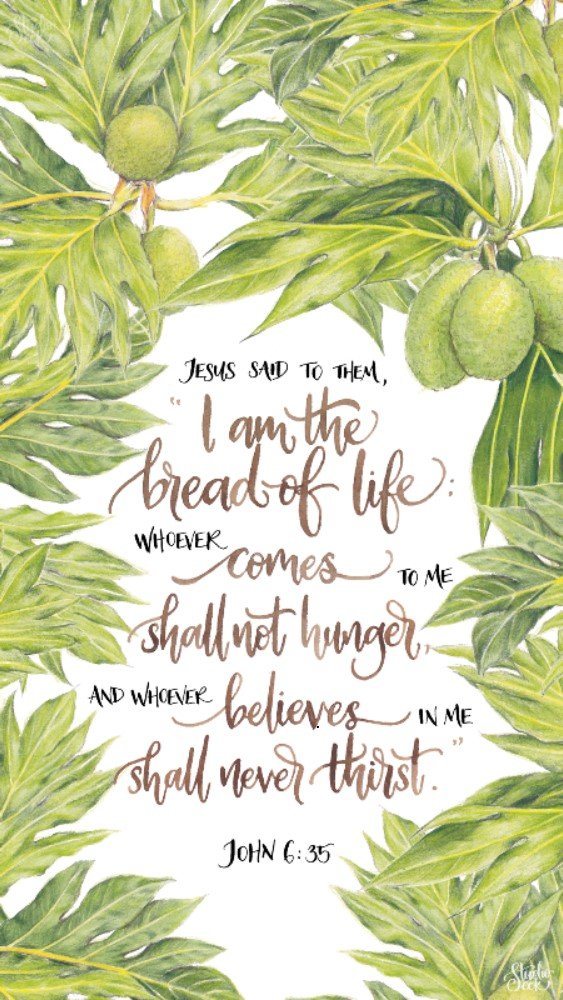 JESUS SAID TO THEM,
"I am the
bread of life:
WHOEVER comes TO ME
shall not hunger,
AND WHOEVER believes IN ME
shall never thirst."
JOHN 6:35
Studio
Seek